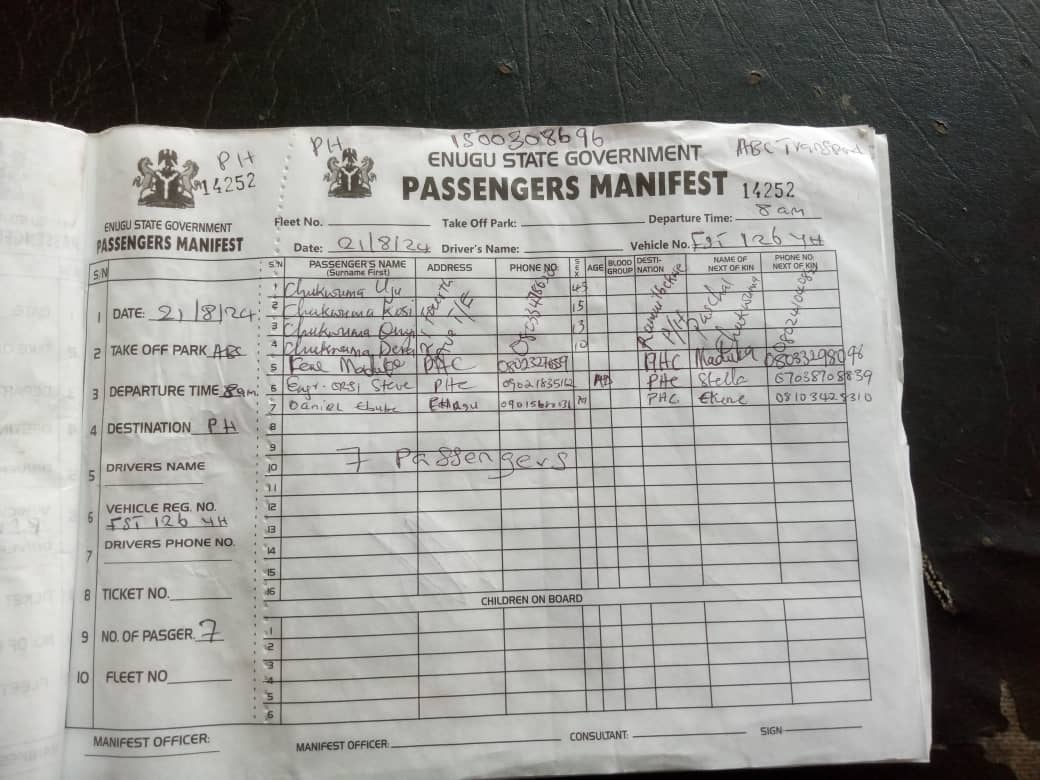 PH
14252
ENUGU STATE GOVERNMENT
PASSENGERS MANIFEST
S/N
1 DATE: 21/8/24
2 TAKE OFF PARK ABC
3 DEPARTURE TIME 8am
4 DESTINATION PH
5 DRIVERS NAME
6 VEHICLE REG. NO.
FST 126 YH
7 DRIVERS PHONE NO.
8 TICKET NO.
9 NO. OF PASGER. 7
10 FLEET NO
MANIFEST OFFICER:
PH 1500308696
ABC Transport
ENUGU STATE GOVERNMENT
PASSENGERS MANIFEST 14252
Fleet No. Take Off Park: Departure Time: 8am
Date: 21/8/24 Driver's Name: Vehicle No. FST 126 YH
S.N PASSENGER'S NAME (Surname First) ADDRESS PHONE NO. SEX AGE BLOOD GROUP DESTI-NATION NAME OF NEXT OF KIN PHONE NO: NEXT OF KIN
1 Chukwuma Uju 45
2 Chukwuma Kosi 15 P/H Paschal
3 Chukwuma 13 Chukwuma
4 Chukwuma 10
5 Madube PHC PHC Maduka 08083298096
6 Engr. Orsi Steve PHC PHC Stella 07038708839
7 Daniel Ebube Enugu M PHC Ekene 08103428310
8
9
10 7 Passengers
11
12
13
14
15
16
CHILDREN ON BOARD
1
2
3
4
5
6
MANIFEST OFFICER: CONSULTANT: SIGN